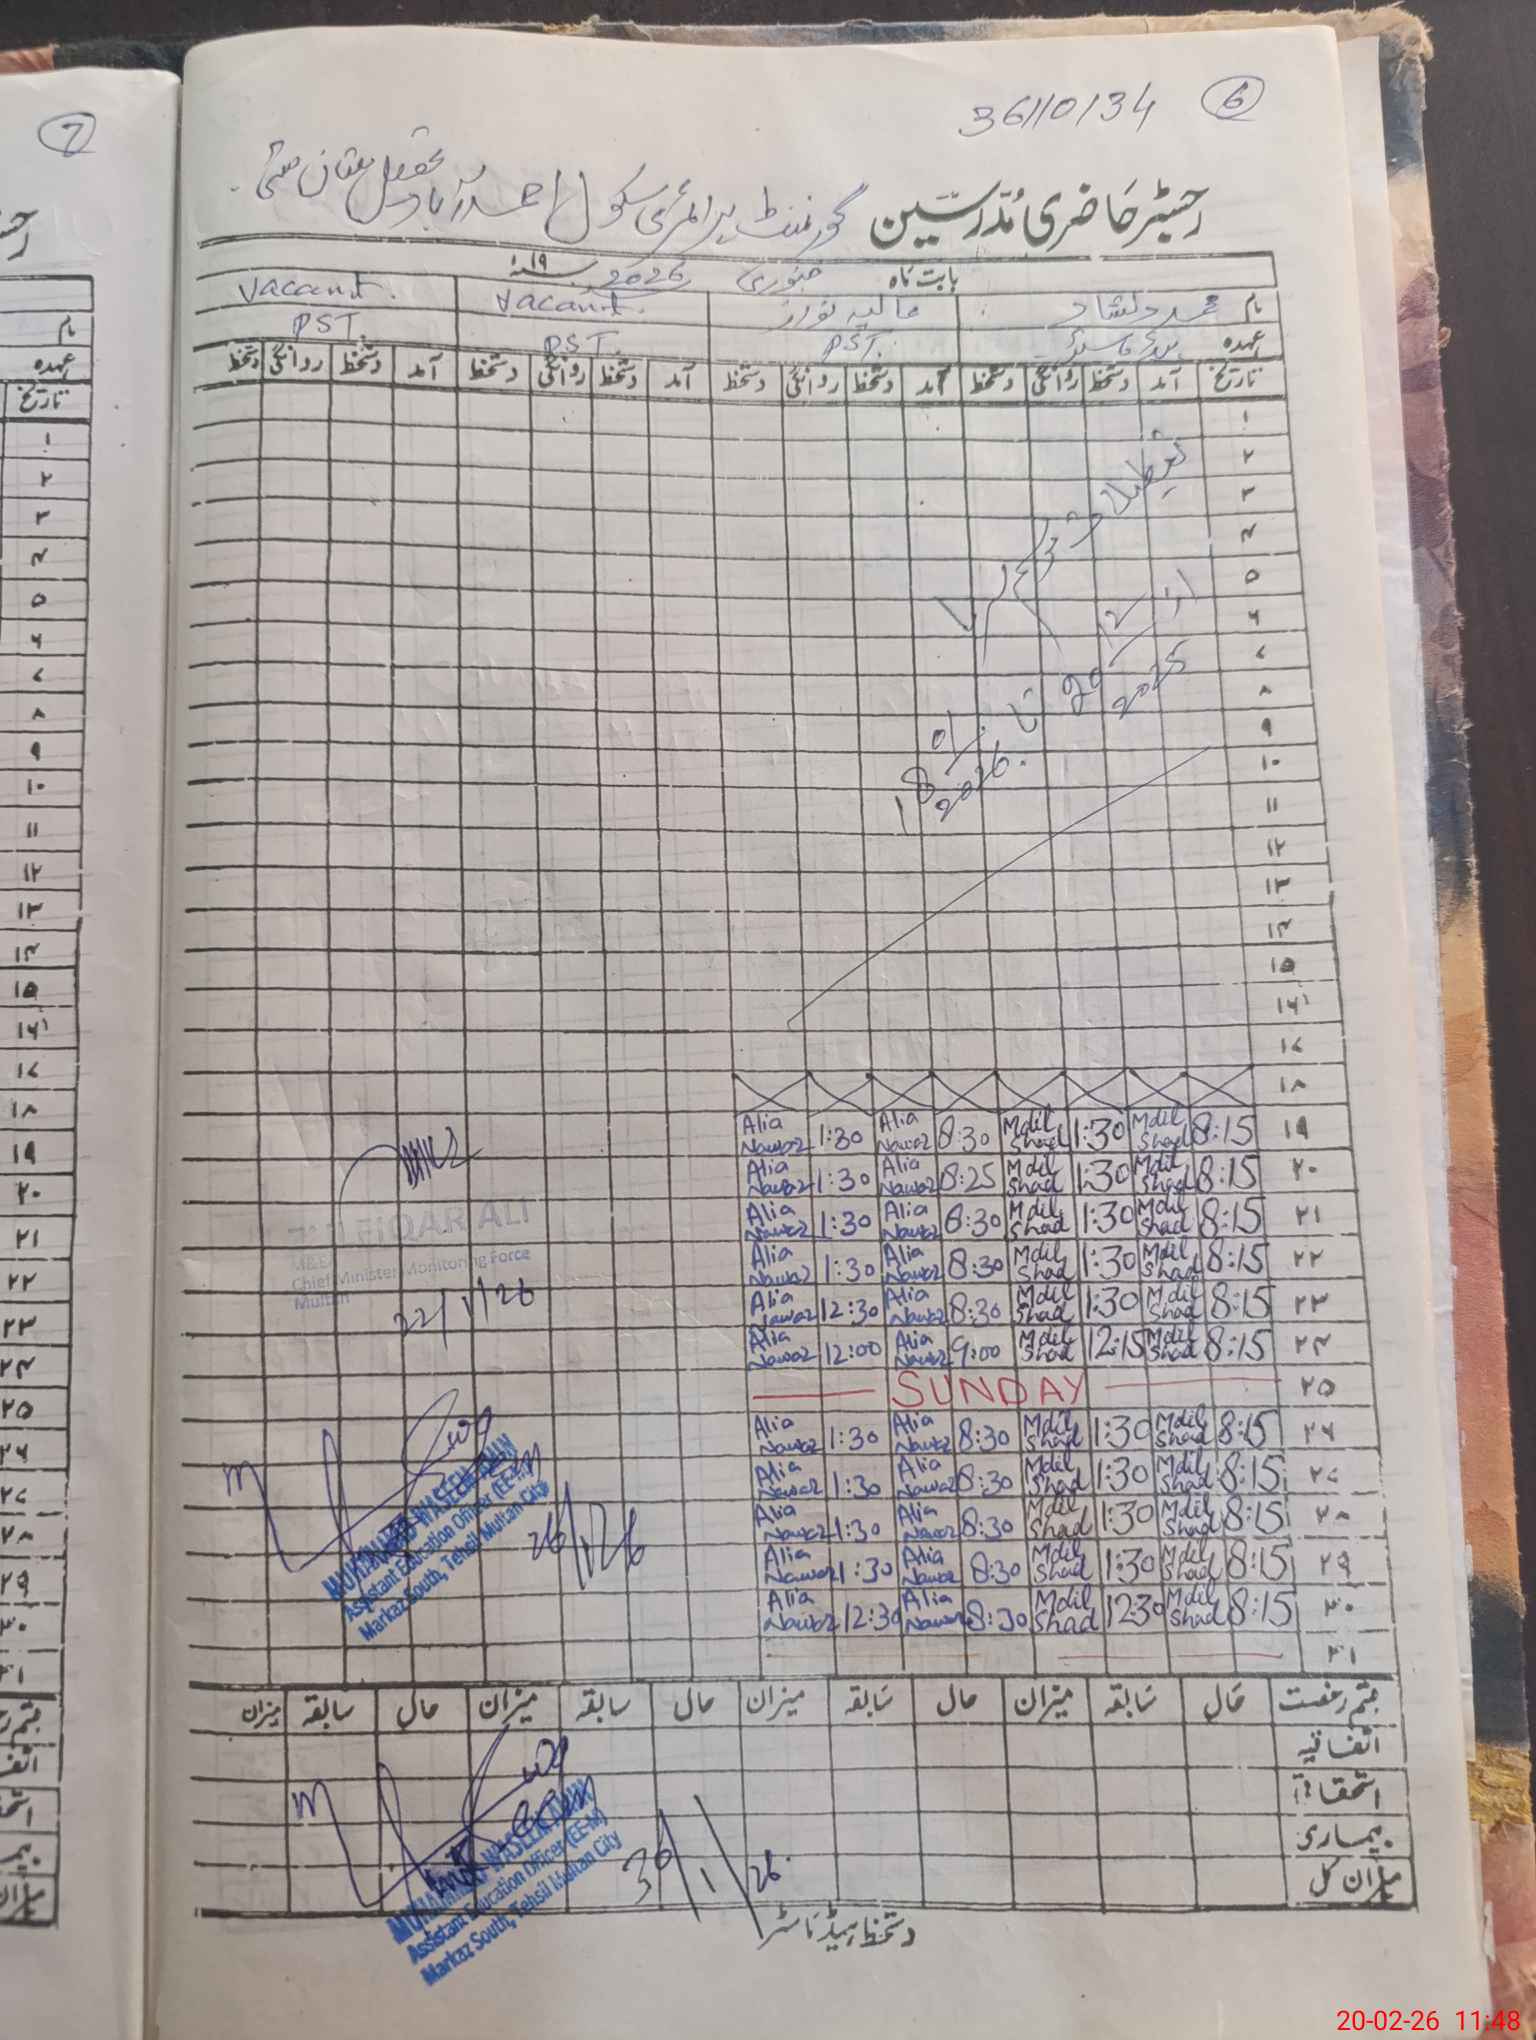 7
36110134 6
رجسٹر حاضری مُدرّسین گورنمنٹ پرائمری سکول احمد آباد تحصیل ملتان سٹی
بابت ماہ جنوری 2026 سنہ ۱۹
نام محمد دلشاد عالیہ نواز Vacant. Vacant.
عہدہ ہیڈ ماسٹر PST. PST. PST.
تاریخ آمد دستخط روانگی دستخط آمد دستخط روانگی دستخط آمد دستخط روانگی دستخط آمد دستخط روانگی دستخط
۱
۲
۳
۴
۵
۶
۷
۸
۹
۱۰
۱۱
۱۲
۱۳
۱۴
۱۵
۱۶
۱۷
۱۸
تعطیلات موسم سرما
از 20/12/2025 تا 18/01/2026.
۱۹ 8:15 Mdil Shad 1:30 Mdil Shad 8:30 Alia Nawaz 1:30 Alia Nawaz
۲۰ 8:15 Mdil Shad 1:30 Mdil Shad 8:25 Alia Nawaz 1:30 Alia Nawaz
۲۱ 8:15 Mdil Shad 1:30 Mdil Shad 8:30 Alia Nawaz 1:30 Alia Nawaz
۲۲ 8:15 Mdil Shad 1:30 Mdil Shad 8:30 Alia Nawaz 1:30 Alia Nawaz
۲۳ 8:15 Mdil Shad 1:30 Mdil Shad 8:30 Alia Nawaz 12:30 Alia Nawaz
۲۴ 8:15 Mdil Shad 12:15 Mdil Shad 9:00 Alia Nawaz 12:00 Alia Nawaz
۲۵ SUNDAY
۲۶ 8:15 Mdil Shad 1:30 Mdil Shad 8:30 Alia Nawaz 1:30 Alia Nawaz
۲۷ 8:15 Mdil Shad 1:30 Mdil Shad 8:30 Alia Nawaz 1:30 Alia Nawaz
۲۸ 8:15 Mdil Shad 1:30 Mdil Shad 8:30 Alia Nawaz 1:30 Alia Nawaz
۲۹ 8:15 Mdil Shad 1:30 Mdil Shad 8:30 Alia Nawaz 1:30 Alia Nawaz
۳۰ 8:15 Mdil Shad 12:30 Mdil Shad 8:30 Alia Nawaz 12:30 Alia Nawaz
۳۱
FIQAR ALI
Chief Minister Monitoring Force
Multan
22/1/26
MUHAMMAD WASEEM
Assistant Education Officer (EE-M)
Markaz South, Tehsil Multan City
26/1/26
قسم رخصت حال سابقہ میزان حال سابقہ میزان حال سابقہ میزان حال سابقہ میزان
اتفاقیہ
استحقاقی
بیماری
میزان کل
MUHAMMAD WASEEM
Assistant Education Officer (EE-M)
Markaz South, Tehsil Multan City
30/1/26.
دستخط ہیڈ ماسٹر
20-02-26 11:48